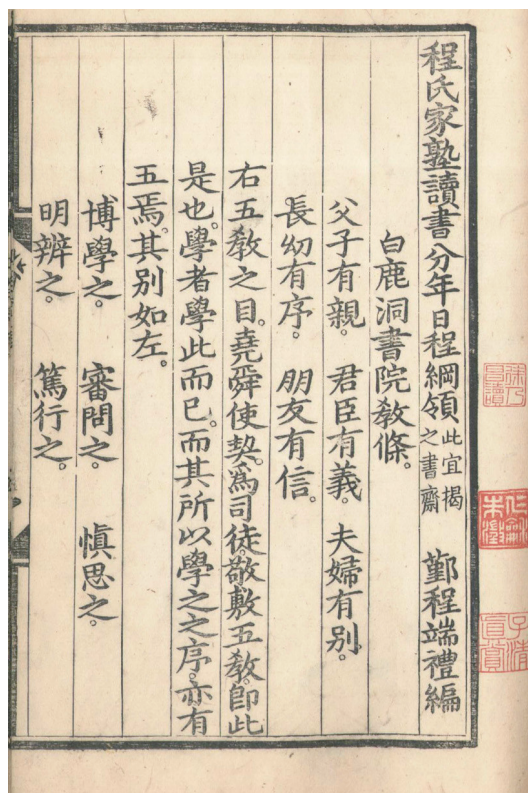 程氏家塾讀書分年日程綱領 此宜揭之書齋 鄞程端禮編
白鹿洞書院敎條。
父子有親。 君臣有義。 夫婦有別。
長幼有序。 朋友有信。
右五敎之目。堯舜使契爲司徒。敬敷五敎。卽此
是也。學者學此而已。而其所以學之之序。亦有
五焉。其別如左。
博學之。 審問之。 愼思之。
明辨之。 篤行之。